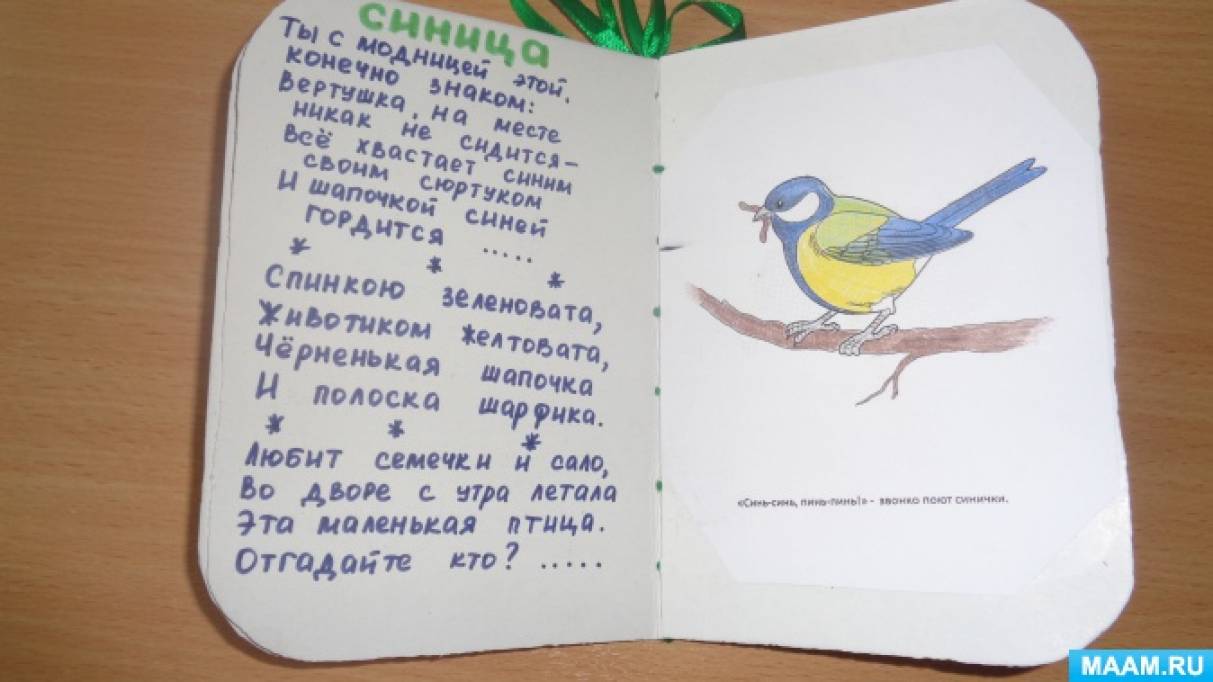 синица
Ты с модницей этой.
конечно знаком:
Вертушка, на месте
никак не сидится-
Всё хвастает синим
своим сюртуком
И шапочкой синей
гордится .....
* * *
Спинкою зеленовата,
Животиком желтовата,
Чёрненькая шапочка
И полоска шарфика.
* * *
Любит семечки и сало,
Во дворе с утра летала
Эта маленькая птица.
Отгадайте кто? .....
«Синь-синь, пинь-пинь!» - звонко поют синички.
MAAM.RU